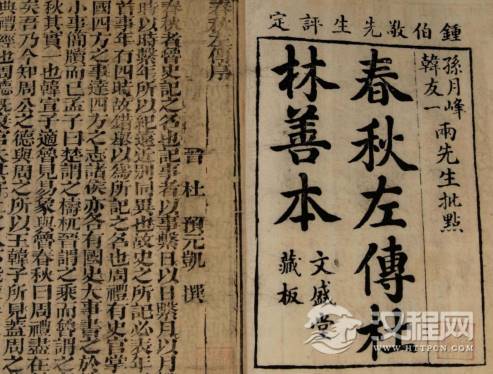 鍾伯敬先生評定
孫月峰
韓友一
兩先生批點
春秋左傳杜
林善本
文盛堂
藏板
春秋左傳序
晉 杜 預元凱 撰
春秋者魯史記之名也記事者以事繫日以日繫月以月
時以時繫年所以紀遠近別同異也故史之所記必表年
首事年有四時故錯舉以為所記之名也周禮有史官掌
國四方之事達四方之志諸侯亦各有國史大事書之於
小事簡牘而已孟子曰楚謂之檮杌晉謂之乘而魯謂之
秋其實一也韓宣子適魯見易象與魯春秋曰周禮盡在
矣吾乃今知周公之德與周之所以王韓子所見蓋周之
典禮經也周德既衰官失其守
汉程网
HTTPCN.COM